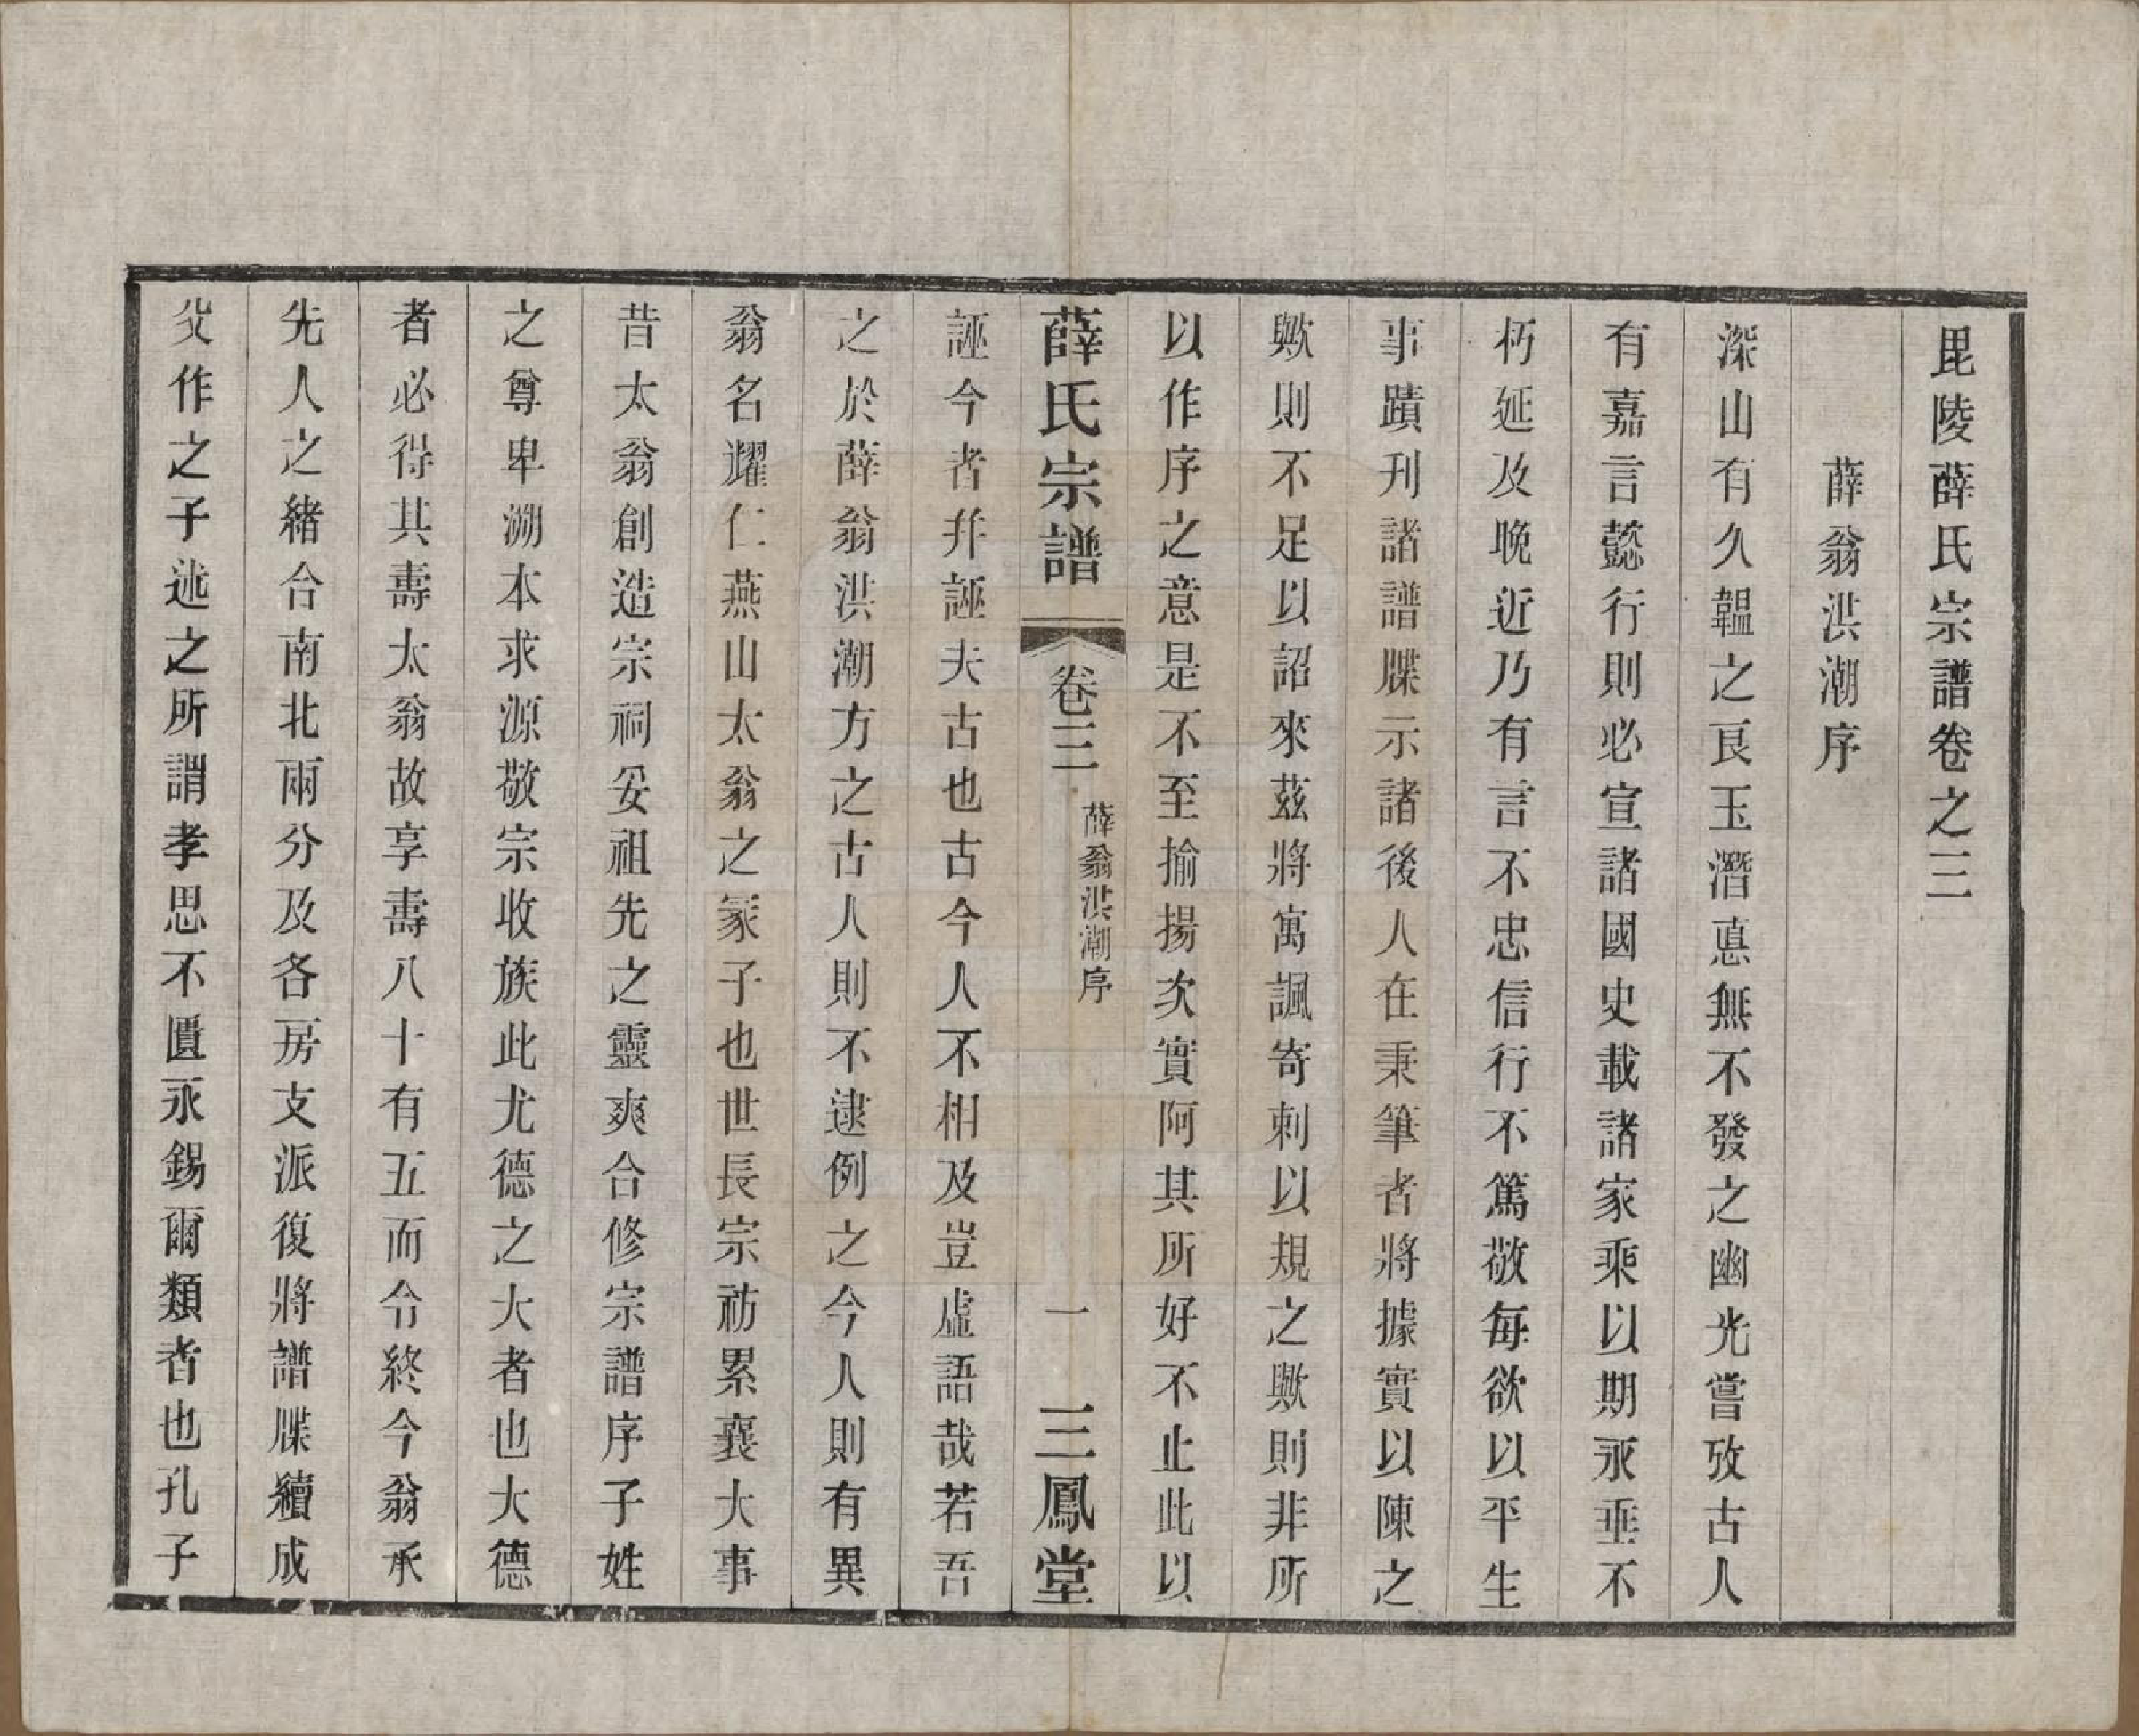 毘陵薛氏宗譜卷之三
薛翁洪潮序
深山有久韞之良玉潛悳無不發之幽光嘗攷古人
有嘉言懿行則必宣諸國史載諸家乘以期永垂不
朽延及晚近乃有言不忠信行不篤敬每欲以平生
事蹟刋諸譜牒示諸後人在秉筆者將據實以陳之
歟則不足以詔來茲將寓諷寄刺以規之歟則非所
以作序之意是不至揄揚次實阿其所好不止此以
薛氏宗譜
卷三
薛翁洪潮序
一
三鳳堂
誣今者幷誣夫古也古今人不相及豈虛語哉若吾
之於薛翁洪潮方之古人則不逮例之今人則有異
翁名耀仁燕山太翁之冡子也世長宗祊累襄大事
昔太翁創造宗祠妥祖先之靈爽合修宗譜序子姓
之尊卑溯本求源敬宗收族此尤德之大者也大德
者必得其壽太翁故享壽八十有五而令終今翁承
先人之緒合南北兩分及各房支派復將譜牒續成
父作之子述之所謂孝思不匱永錫爾類者也孔子